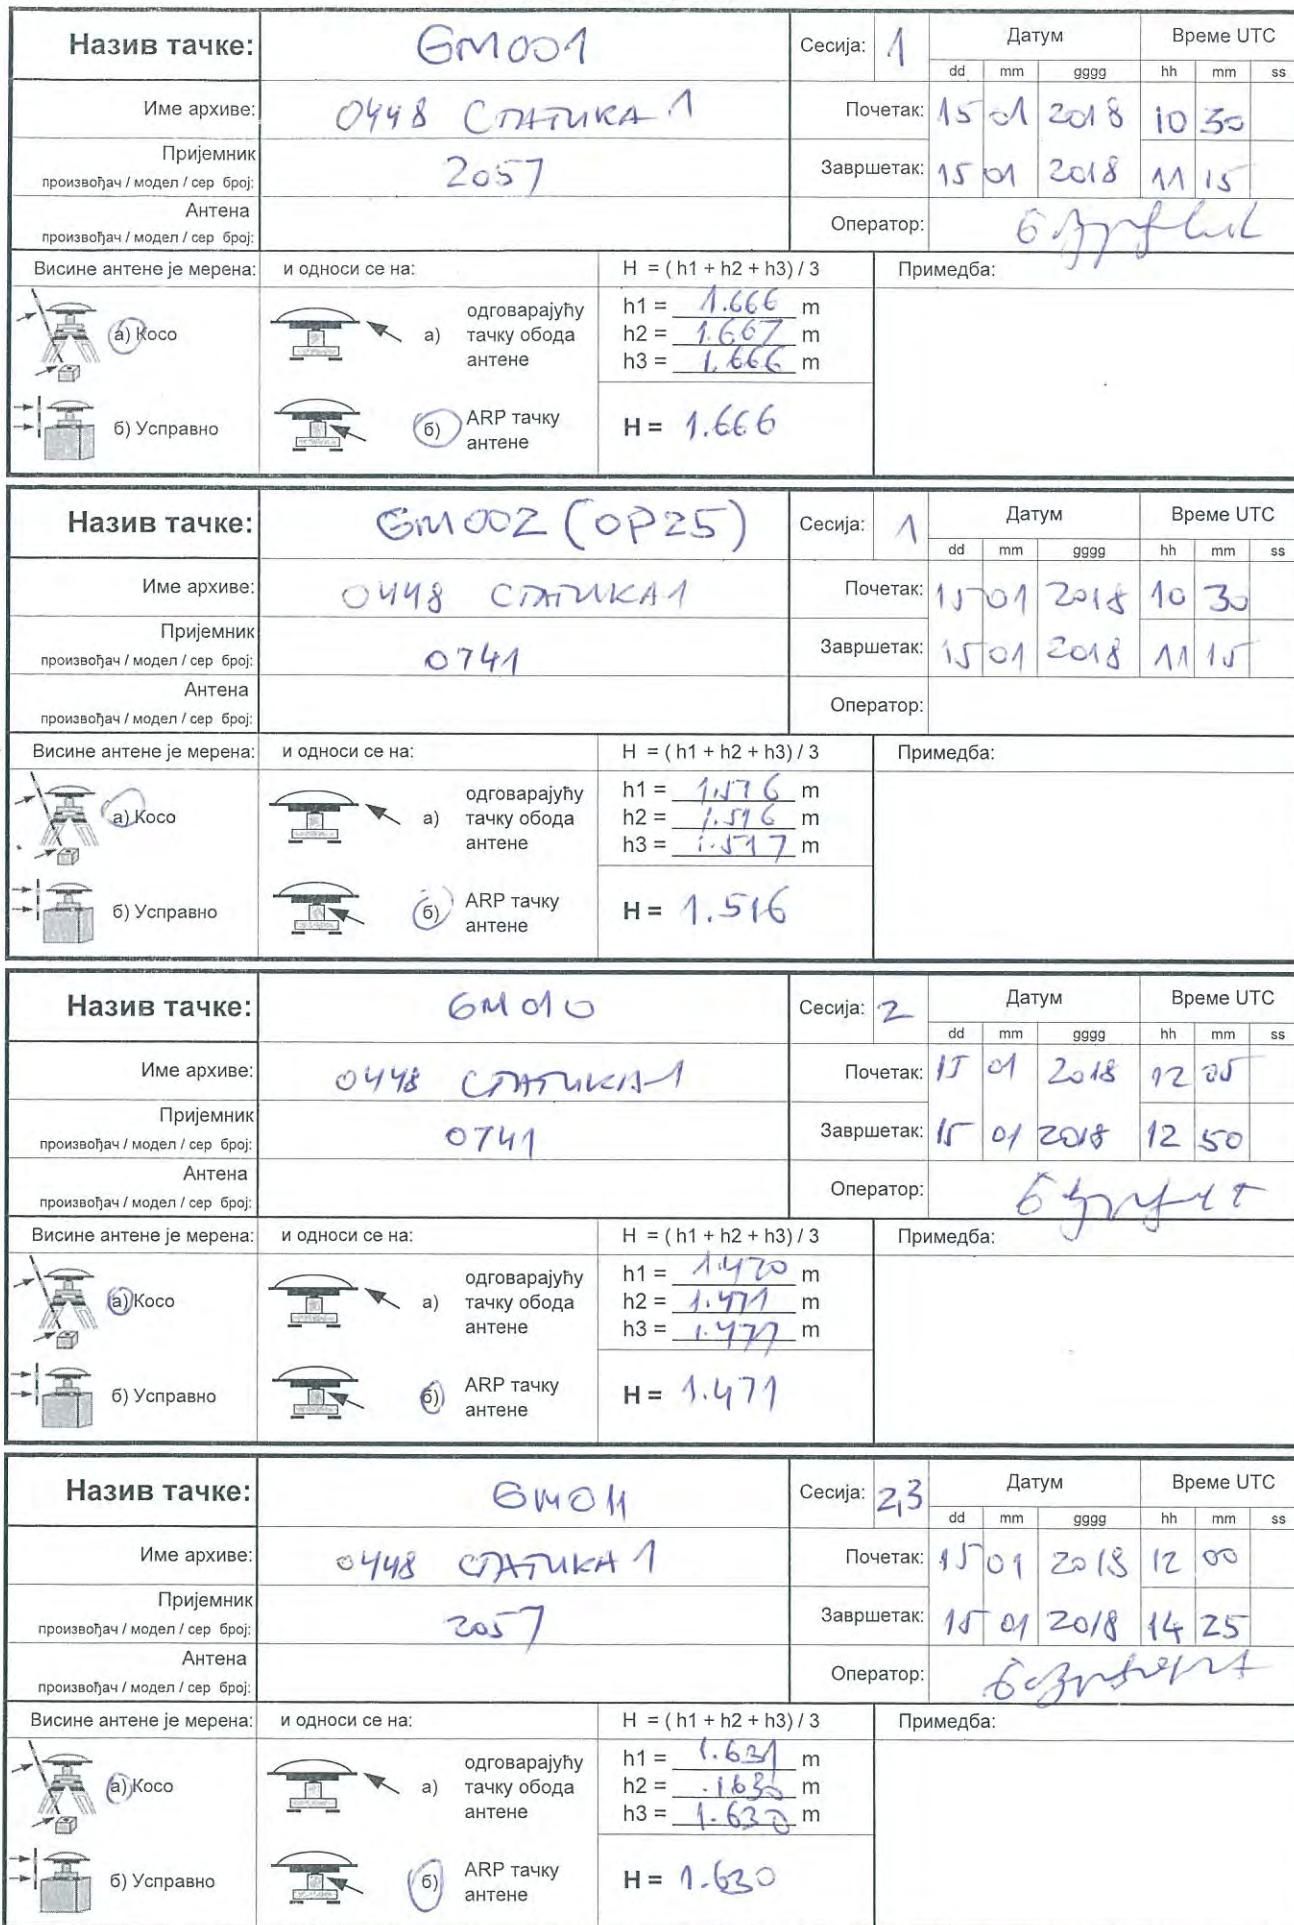 Назив тачке: GM001 Сесија: 1 Датум Време UTC
dd mm gggg hh mm ss
Име архиве: 0448 СТАТИКА 1 Почетак: 15 01 2018 10 30
Пријемник
произвођач / модел / сер број: 2057 Завршетак: 15 01 2018 11 15
Антена
произвођач / модел / сер број: Оператор:
Висине антене је мерена: и односи се на: H = ( h1 + h2 + h3) / 3 Примедба:
а) Косо а) одговарајућу тачку обода антене
h1 = 1.666 m
h2 = 1.667 m
h3 = 1.666 m
б) Усправно б) ARP тачку антене H = 1.666
Назив тачке: GM002 (OP25) Сесија: 1 Датум Време UTC
dd mm gggg hh mm ss
Име архиве: 0448 СТАТИКА1 Почетак: 15 01 2018 10 30
Пријемник
произвођач / модел / сер број: 0741 Завршетак: 15 01 2018 11 15
Антена
произвођач / модел / сер број: Оператор:
Висине антене је мерена: и односи се на: H = ( h1 + h2 + h3) / 3 Примедба:
а) Косо а) одговарајућу тачку обода антене
h1 = 1.516 m
h2 = 1.516 m
h3 = 1.517 m
б) Усправно б) ARP тачку антене H = 1.516
Назив тачке: GM010 Сесија: 2 Датум Време UTC
dd mm gggg hh mm ss
Име архиве: 0448 СТАТИКА1 Почетак: 15 01 2018 12 05
Пријемник
произвођач / модел / сер број: 0741 Завршетак: 15 01 2018 12 50
Антена
произвођач / модел / сер број: Оператор:
Висине антене је мерена: и односи се на: H = ( h1 + h2 + h3) / 3 Примедба:
а) Косо а) одговарајућу тачку обода антене
h1 = 1.470 m
h2 = 1.471 m
h3 = 1.471 m
б) Усправно б) ARP тачку антене H = 1.471
Назив тачке: GM011 Сесија: 2,3 Датум Време UTC
dd mm gggg hh mm ss
Име архиве: 0448 СТАТИКА 1 Почетак: 15 01 2018 12 00
Пријемник
произвођач / модел / сер број: 2057 Завршетак: 15 01 2018 14 25
Антена
произвођач / модел / сер број: Оператор:
Висине антене је мерена: и односи се на: H = ( h1 + h2 + h3) / 3 Примедба:
а) Косо а) одговарајућу тачку обода антене
h1 = 1.631 m
h2 = m
h3 = 1.630 m
б) Усправно б) ARP тачку антене H = 1.630